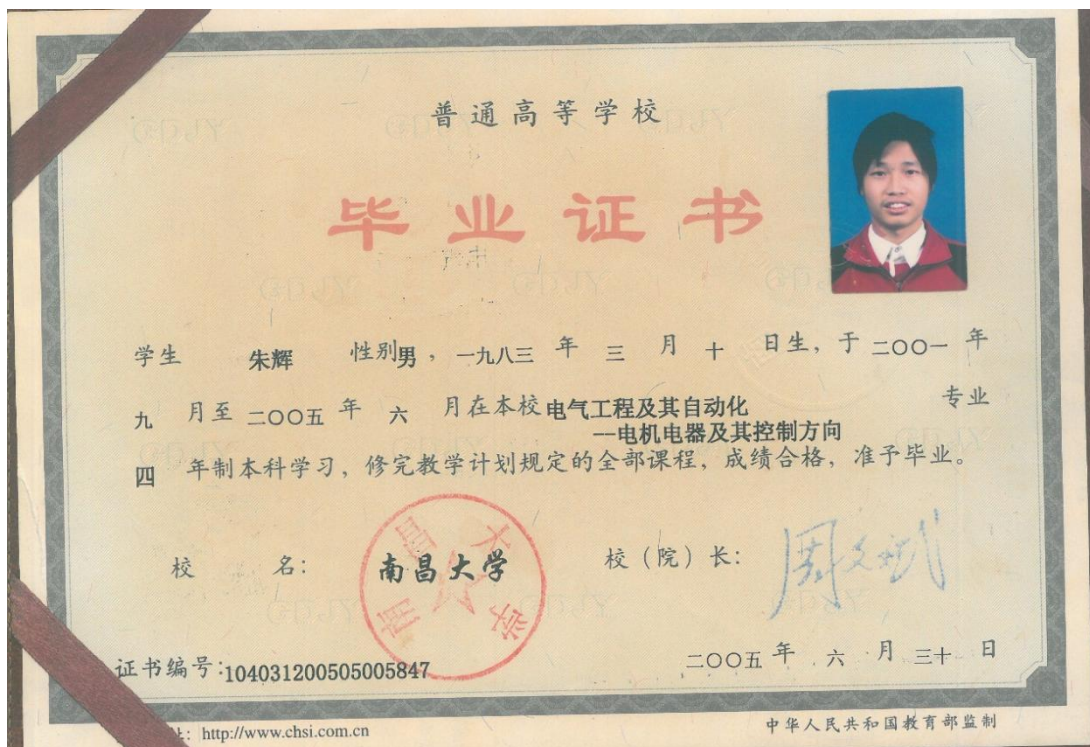 普通高等学校
毕业证书
学生 朱辉 性别男，一九八三 年 三 月 十 日生，于 二〇〇一 年
九 月至 二〇〇五 年 六 月在本校 电气工程及其自动化 专业
--电机电器及其控制方向
四 年制本科学习，修完教学计划规定的全部课程，成绩合格，准予毕业。
校 名： 南昌大学 校（院）长： 周文斌
南昌大学
证书编号：104031200505005847 二〇〇五 年 六 月 三十 日
址：http://www.chsi.com.cn 中华人民共和国教育部监制